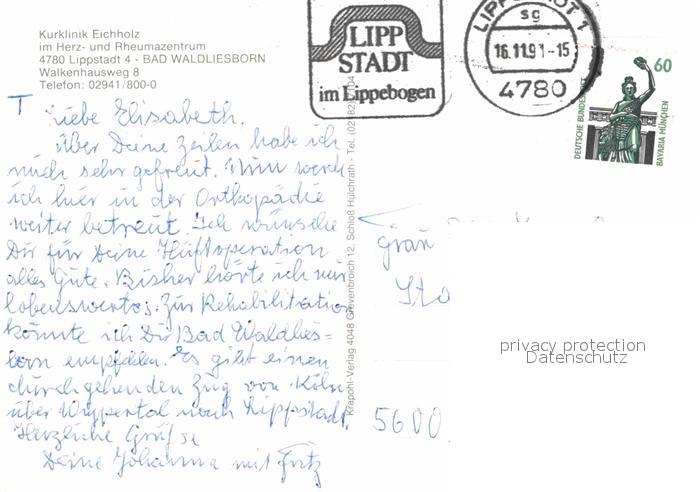 Kurklinik Eichholz
im Herz- und Rheumazentrum
4780 Lippstadt 4 - BAD WALDLIESBORN
Walkenhausweg 8
Telefon: 02941/800-0
LIPP
STADT
im Lippebogen
LIPPSTADT 1
sg
16.11.91-15
4780
60
DEUTSCHE BUNDESPOST
BAVARIA MÜNCHEN
Liebe Elisabeth,
über Deine Zeilen habe ich
mich sehr gefreut. Nun werde
ich hier in der Orthopädie
weiter betreut. Ich wünsche
Dir für Deine Hüftoperation
alles Gute. Bisher hörte ich nur
lobenswertes. Zur Rehabilitation
könnte ich Dir Bad Waldlies=
born empfehlen. Es gibt einen
durchgehenden Zug von Köln
über Wuppertal nach Lippstadt.
Herzliche Grüße
Deine Johanna mit Fritz
Krapohl-Verlag 4048 Grevenbroich 12, Schloß Hülchrath - Tel.
Frau
5600
privacy protection
Datenschutz